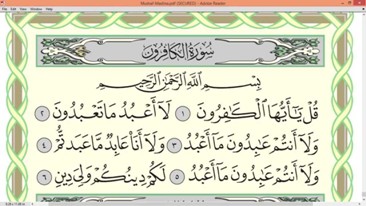 Mushaf-Madina.pdf (SECURED) - Adobe Reader
File Edit View Window Help
سُورَةُ الكَافِرُونَ
بِسْمِ اللَّهِ الرَّحْمَٰنِ الرَّحِيمِ
قُلْ يَٰٓأَيُّهَا ٱلْكَٰفِرُونَ ١ لَآ أَعْبُدُ مَا تَعْبُدُونَ ٢
وَلَآ أَنتُمْ عَٰبِدُونَ مَآ أَعْبُدُ ٣ وَلَآ أَنَا۠ عَابِدٌ مَّا عَبَدتُّمْ ٤
وَلَآ أَنتُمْ عَٰبِدُونَ مَآ أَعْبُدُ ٥ لَكُمْ دِينُكُمْ وَلِىَ دِينِ ٦